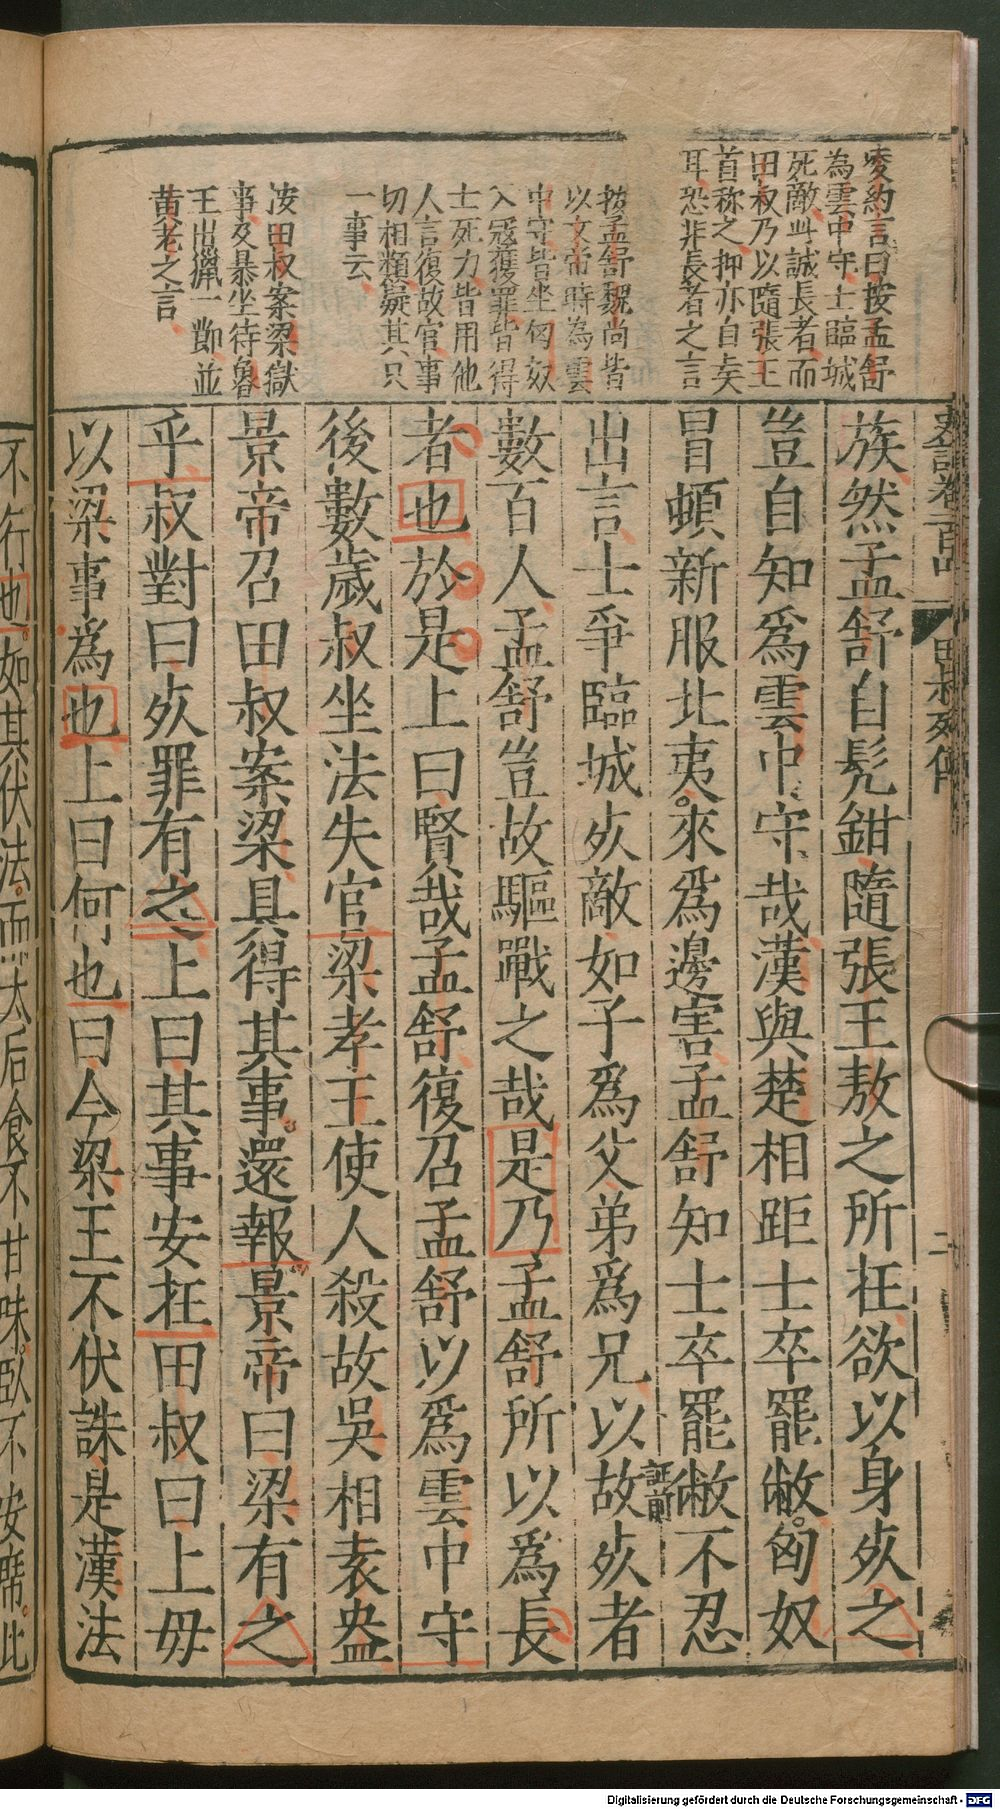 凌約言曰按孟舒
為雲中守士臨城
死敵此誠長者而
田叔乃以隨張王
首称之抑亦自矣
耳恐非長者之言
按孟舒魏尚皆
以文帝時為雲
中守皆坐匈奴
入寇獲罪皆得
士死力皆用他
人言復故官事
切相類疑其只
一事云
按田叔案梁獄
事及暴坐待魯
王出獵一節並
黄老之言
史記卷一百四
田叔列傳
二
族然孟舒自髠鉗隨張王敖之所在欲以身死之
豈自知爲雲中守哉漢與楚相距士卒罷敝匈奴
冒頓新服北夷來爲邊害孟舒知士卒罷敝不忍
出言士爭臨城死敵如子爲父弟爲兄以故死者
證前
數百人孟舒豈故驅戰之哉是乃孟舒所以爲長
者也於是上曰賢哉孟舒復召孟舒以爲雲中守
後數歲叔坐法失官梁孝王使人殺故吳相袁盎
景帝召田叔案梁具得其事還報景帝曰梁有之
乎叔對曰死罪有之上曰其事安在田叔曰上毋
以梁事爲也上曰何也曰今梁王不伏誅是漢法
不行也如其伏法而太后食不甘味臥不安席此
Digitalisierung gefördert durch die Deutsche Forschungsgemeinschaft - DFG